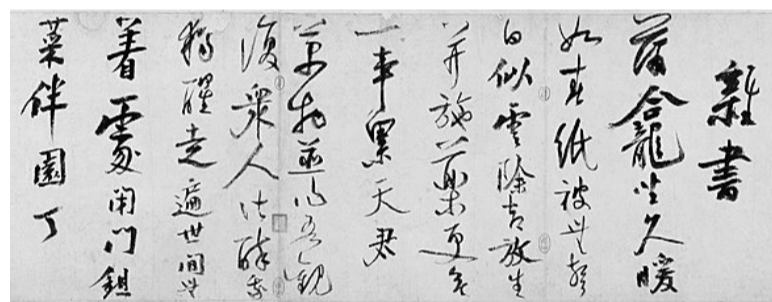 雜書
蒲龕坐久暖
如春紙被無聲
白似雲除却放生
并施藥更無
一事累天君
萬物並作吾觀
復衆人皆醉我
獨醒走遍世間無
著處閉門鉏
菜伴園丁